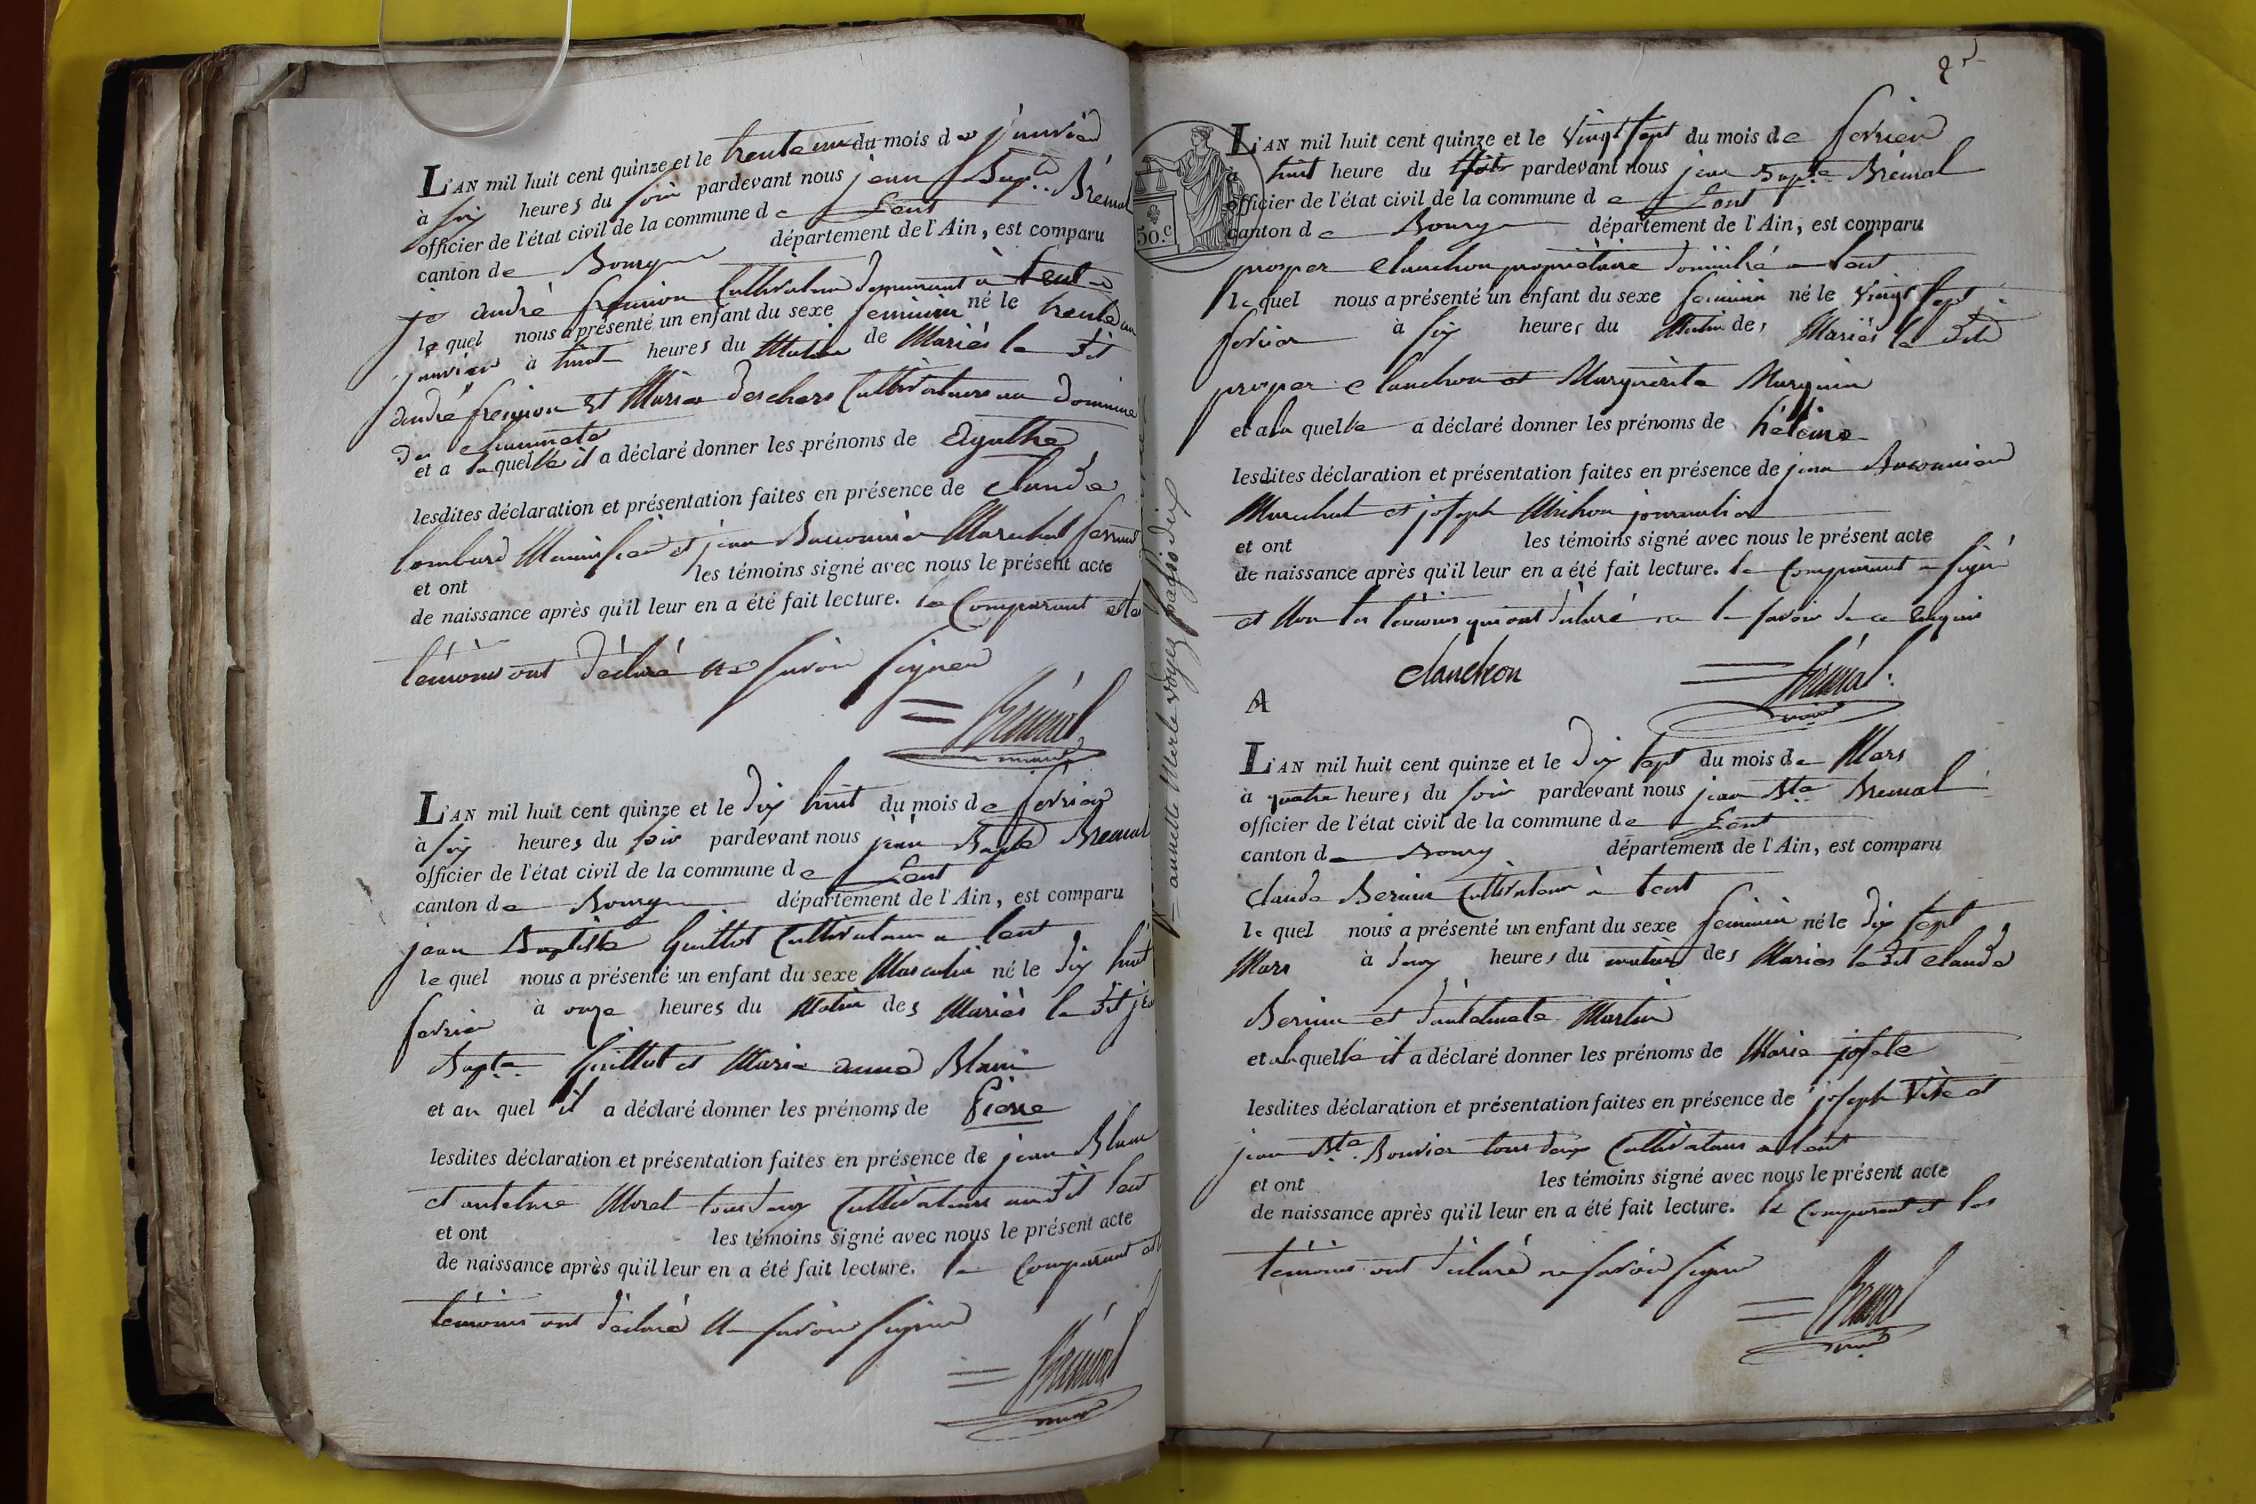 L'AN mil huit cent quinze et le trente un du mois de janvier
à six heures du soir pardevant nous jean Bapte Brémal
officier de l'état civil de la commune de Lent
canton de Bourg département de l'Ain, est comparu
andré cultivateur demeurant à Lent
le quel nous a présenté un enfant du sexe feminin né le trente un
janvier à huit heures du Matin de Mariés le dit
andré et Marie Deschars Cultivateurs au Domaine
de
et a la quelle il a déclaré donner les prénoms de Agathe
lesdites déclaration et présentation faites en présence de Claude
Lombard et jean Marechal ferrand
et ont les témoins signé avec nous le présent acte
de naissance après qu'il leur en a été fait lecture. le Comparant et les
témoins ont déclaré ne savoir signer
Brémal
maire
L'AN mil huit cent quinze et le dix huit du mois de fevrier
à six heures du soir pardevant nous jean Bapte Bremal
officier de l'état civil de la commune de Lent
canton de Bourg département de l'Ain, est comparu
jean Baptiste Guillot Cultivateur a Lent
le quel nous a présenté un enfant du sexe Masculin né le dix huit
fevrier à onze heures du Matin des Mariés le dit jean
Bapte Guillot et Marie anne Blanc
et au quel il a déclaré donner les prénoms de Pierre
lesdites déclaration et présentation faites en présence de jean Blanc
et antelme Morel tous deux Cultivateurs audit Lent
et ont les témoins signé avec nous le présent acte
de naissance après qu'il leur en a été fait lecture. le Comparant et les
témoins ont déclaré ne savoir signer
Brémal
maire
= annette Merle voyez page dix
50.c
L'AN mil huit cent quinze et le vingt sept du mois de fevrier
à huit heure du pardevant nous jean Bapte Brémal
officier de l'état civil de la commune de Lent
canton de Bourg département de l'Ain, est comparu
prosper Clanchon propriétaire domicilié a Lent
le quel nous a présenté un enfant du sexe feminin né le vingt sept
fevrier à six heures du Matin des Mariés le dit
prosper Clanchon et Marguerite Marguin
et a la quelle a déclaré donner les prénoms de hélène
lesdites déclaration et présentation faites en présence de jean
Marechal et joseph Michon journalier
et ont les témoins signé avec nous le présent acte
de naissance après qu'il leur en a été fait lecture. le Comparant a signé
et Non les témoins qui ont déclaré ne le savoir de ce enquis
Clanchon
Brémal
maire
A
L'AN mil huit cent quinze et le dix sept du mois de Mars
à quatre heures du soir pardevant nous jean Bte Bremal
officier de l'état civil de la commune de Lent
canton de Bourg département de l'Ain, est comparu
Claude Cultivateur à Lent
le quel nous a présenté un enfant du sexe feminin né le dix sept
Mars à deux heures du matin des Mariés le dit Claude
et d'antelmete Martin
et a la quelle il a déclaré donner les prénoms de Marie josete
lesdites déclaration et présentation faites en présence de joseph et
jean Bte Bouvier tous deux Cultivateurs a Lent
et ont les témoins signé avec nous le présent acte
de naissance après qu'il leur en a été fait lecture. le Comparant et les
témoins ont déclaré ne savoir signer
Brémal
maire